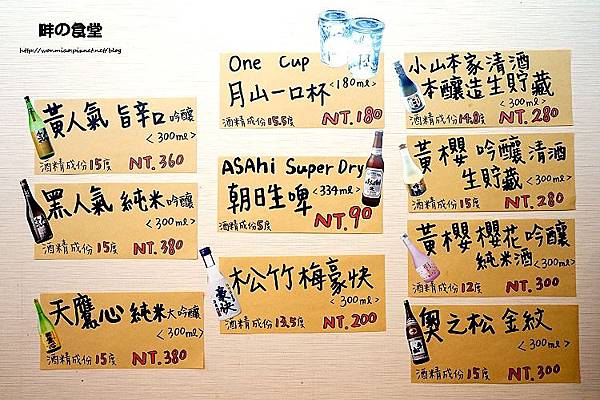 畔の食堂
http://wonmian.pixnet.net/blog
黃人氣 旨辛口 吟釀
<300ml>
酒精成份15度 NT.360
黑人氣 純米 吟釀
<300ml>
酒精成份15度 NT.380
天鷹心 純米大吟釀
<300ml>
酒精成份15度 NT.380
One Cup
月山一口杯 <180ml>
酒精成份15.5度 NT.180
ASAhi Super Dry
朝日生啤 <334ml>
酒精成份5度 NT.90
松竹梅豪快
<300ml>
酒精成份13.5度 NT.200
小山本家清酒
本釀造生貯藏
<300ml>
酒精成份14.8度 NT.280
黃櫻 吟釀清酒
生貯藏 <300ml>
酒精成份15度 NT.280
黃櫻櫻花吟釀
純米酒 <300ml>
酒精成份12度 NT.300
奧之松 金紋
<300ml>
酒精成份15度 NT.300